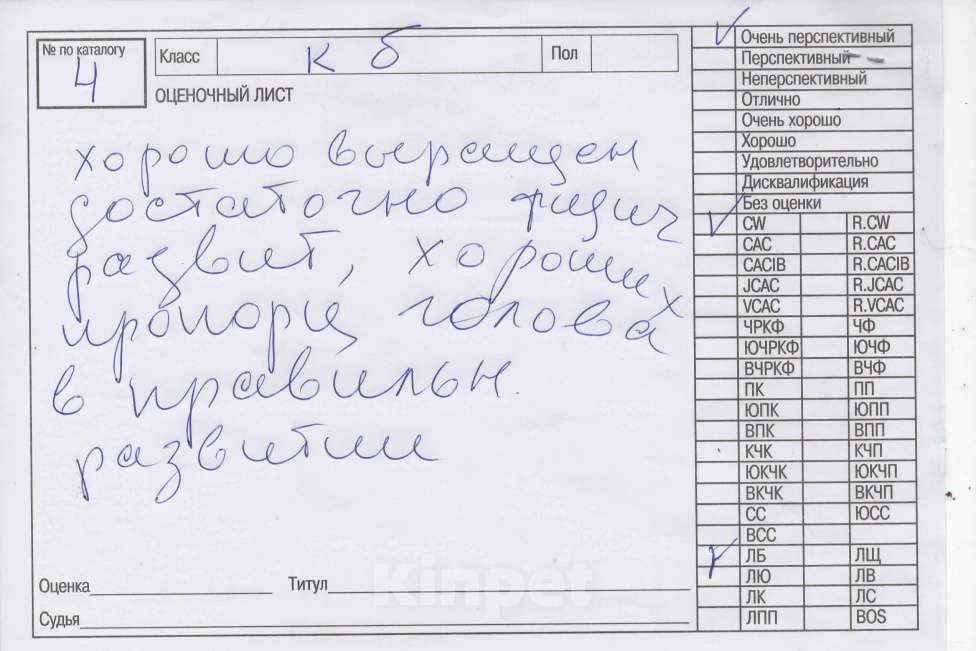 № по каталогу
4
Класс к б Пол
ОЦЕНОЧНЫЙ ЛИСТ
хорошо выращен
достаточно физич
развит, хороших
пропорц голова
в правильн.
развитии
Оценка Титул
Судья
Kinpet
Очень перспективный
Перспективный
Неперспективный
Отлично
Очень хорошо
Хорошо
Удовлетворительно
Дисквалификация
Без оценки
CW R.CW
CAC R.CAC
CACIB R.CACIB
JCAC R.JCAC
VCAC R.VCAC
ЧРКФ ЧФ
ЮЧРКФ ЮЧФ
ВЧРКФ ВЧФ
ПК ПП
ЮПК ЮПП
ВПК ВПП
КЧК КЧП
ЮКЧК ЮКЧП
ВКЧК ВКЧП
СС ЮСС
ВСС
ЛБ ЛЩ
ЛЮ ЛВ
ЛК ЛС
ЛПП BOS